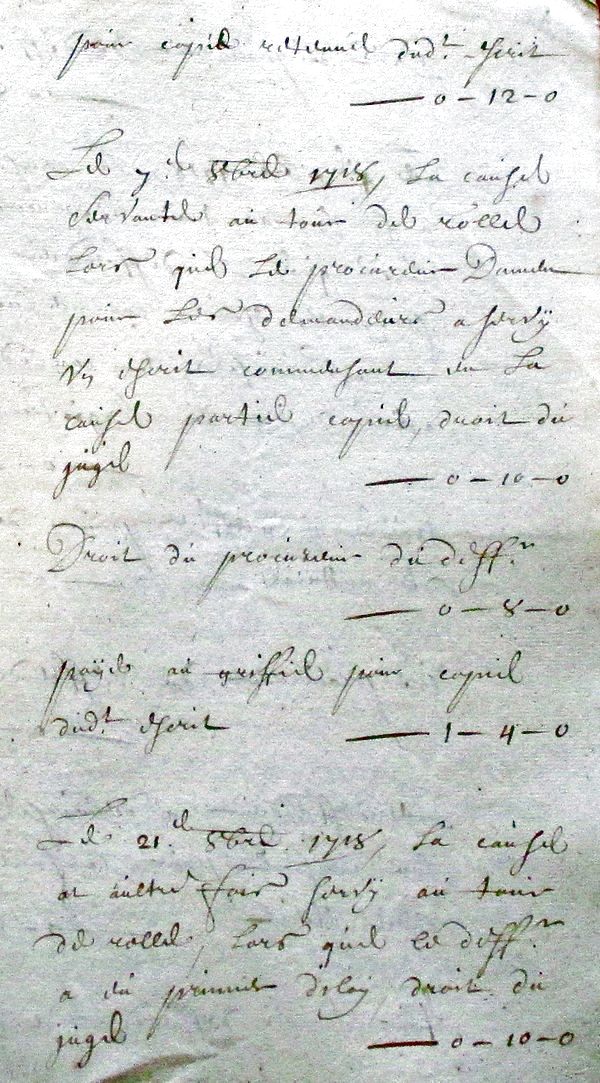 pour copie retenue dud.t escrit
0 - 12 - 0
Le 7.e 8bre 1718, La cause
servante au tour de rolle
Lors que Le procureur
pour Les demandeurs a servy
Un escrit commensant en La
cause partie copie, droit du
juge
0 - 10 - 0
Droit du procureur du deff.r
0 - 8 - 0
payé au greffie pour copie
dud.t escrit
1 - 4 - 0
Le 21.e 8bre 1718, La cause
at aultre fois servy au tour
de rolle, Lors que le deff.r
a eu premier delay, droit du
juge
0 - 10 - 0